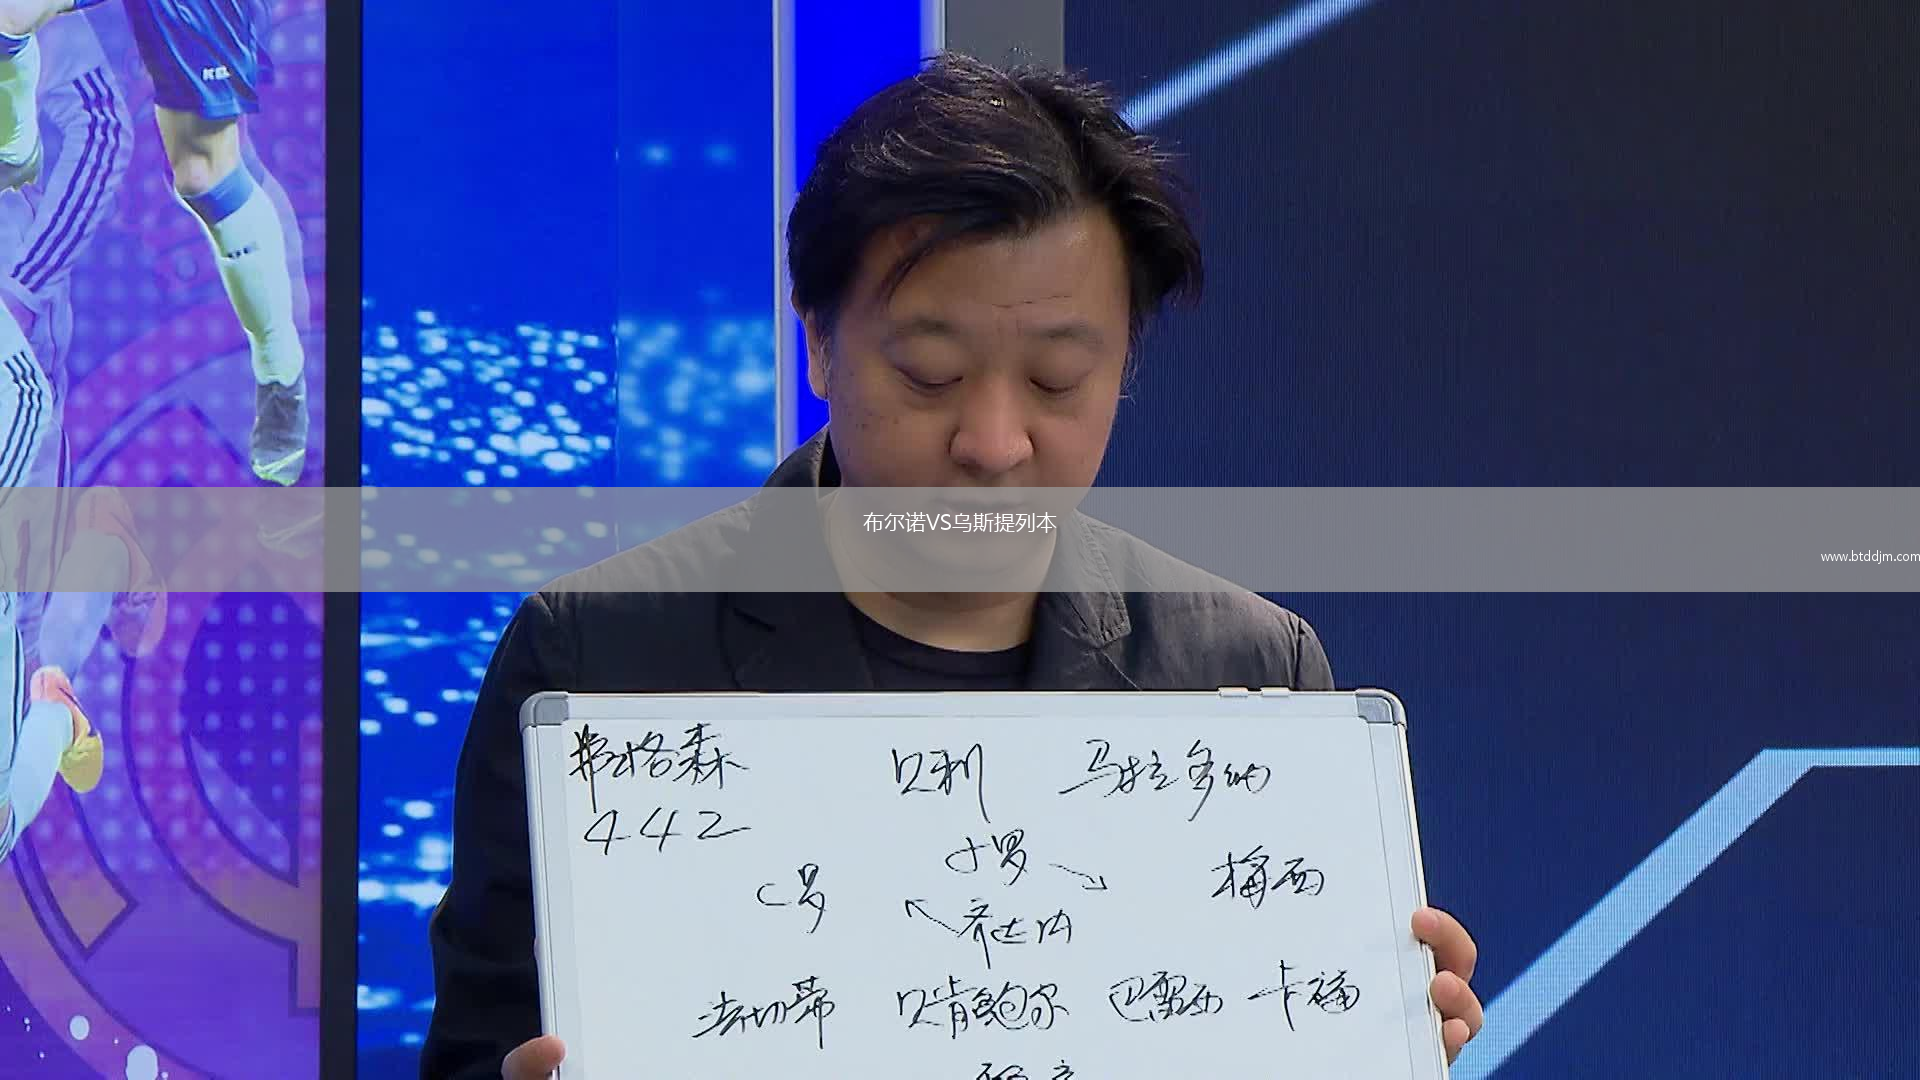 KEL
布尔诺VS乌斯提列本
www.btddjm.com
弗格森 贝利 马拉多纳
442
小罗
C罗 梅西
齐达内
法切蒂 贝肯鲍尔 巴雷西 卡福